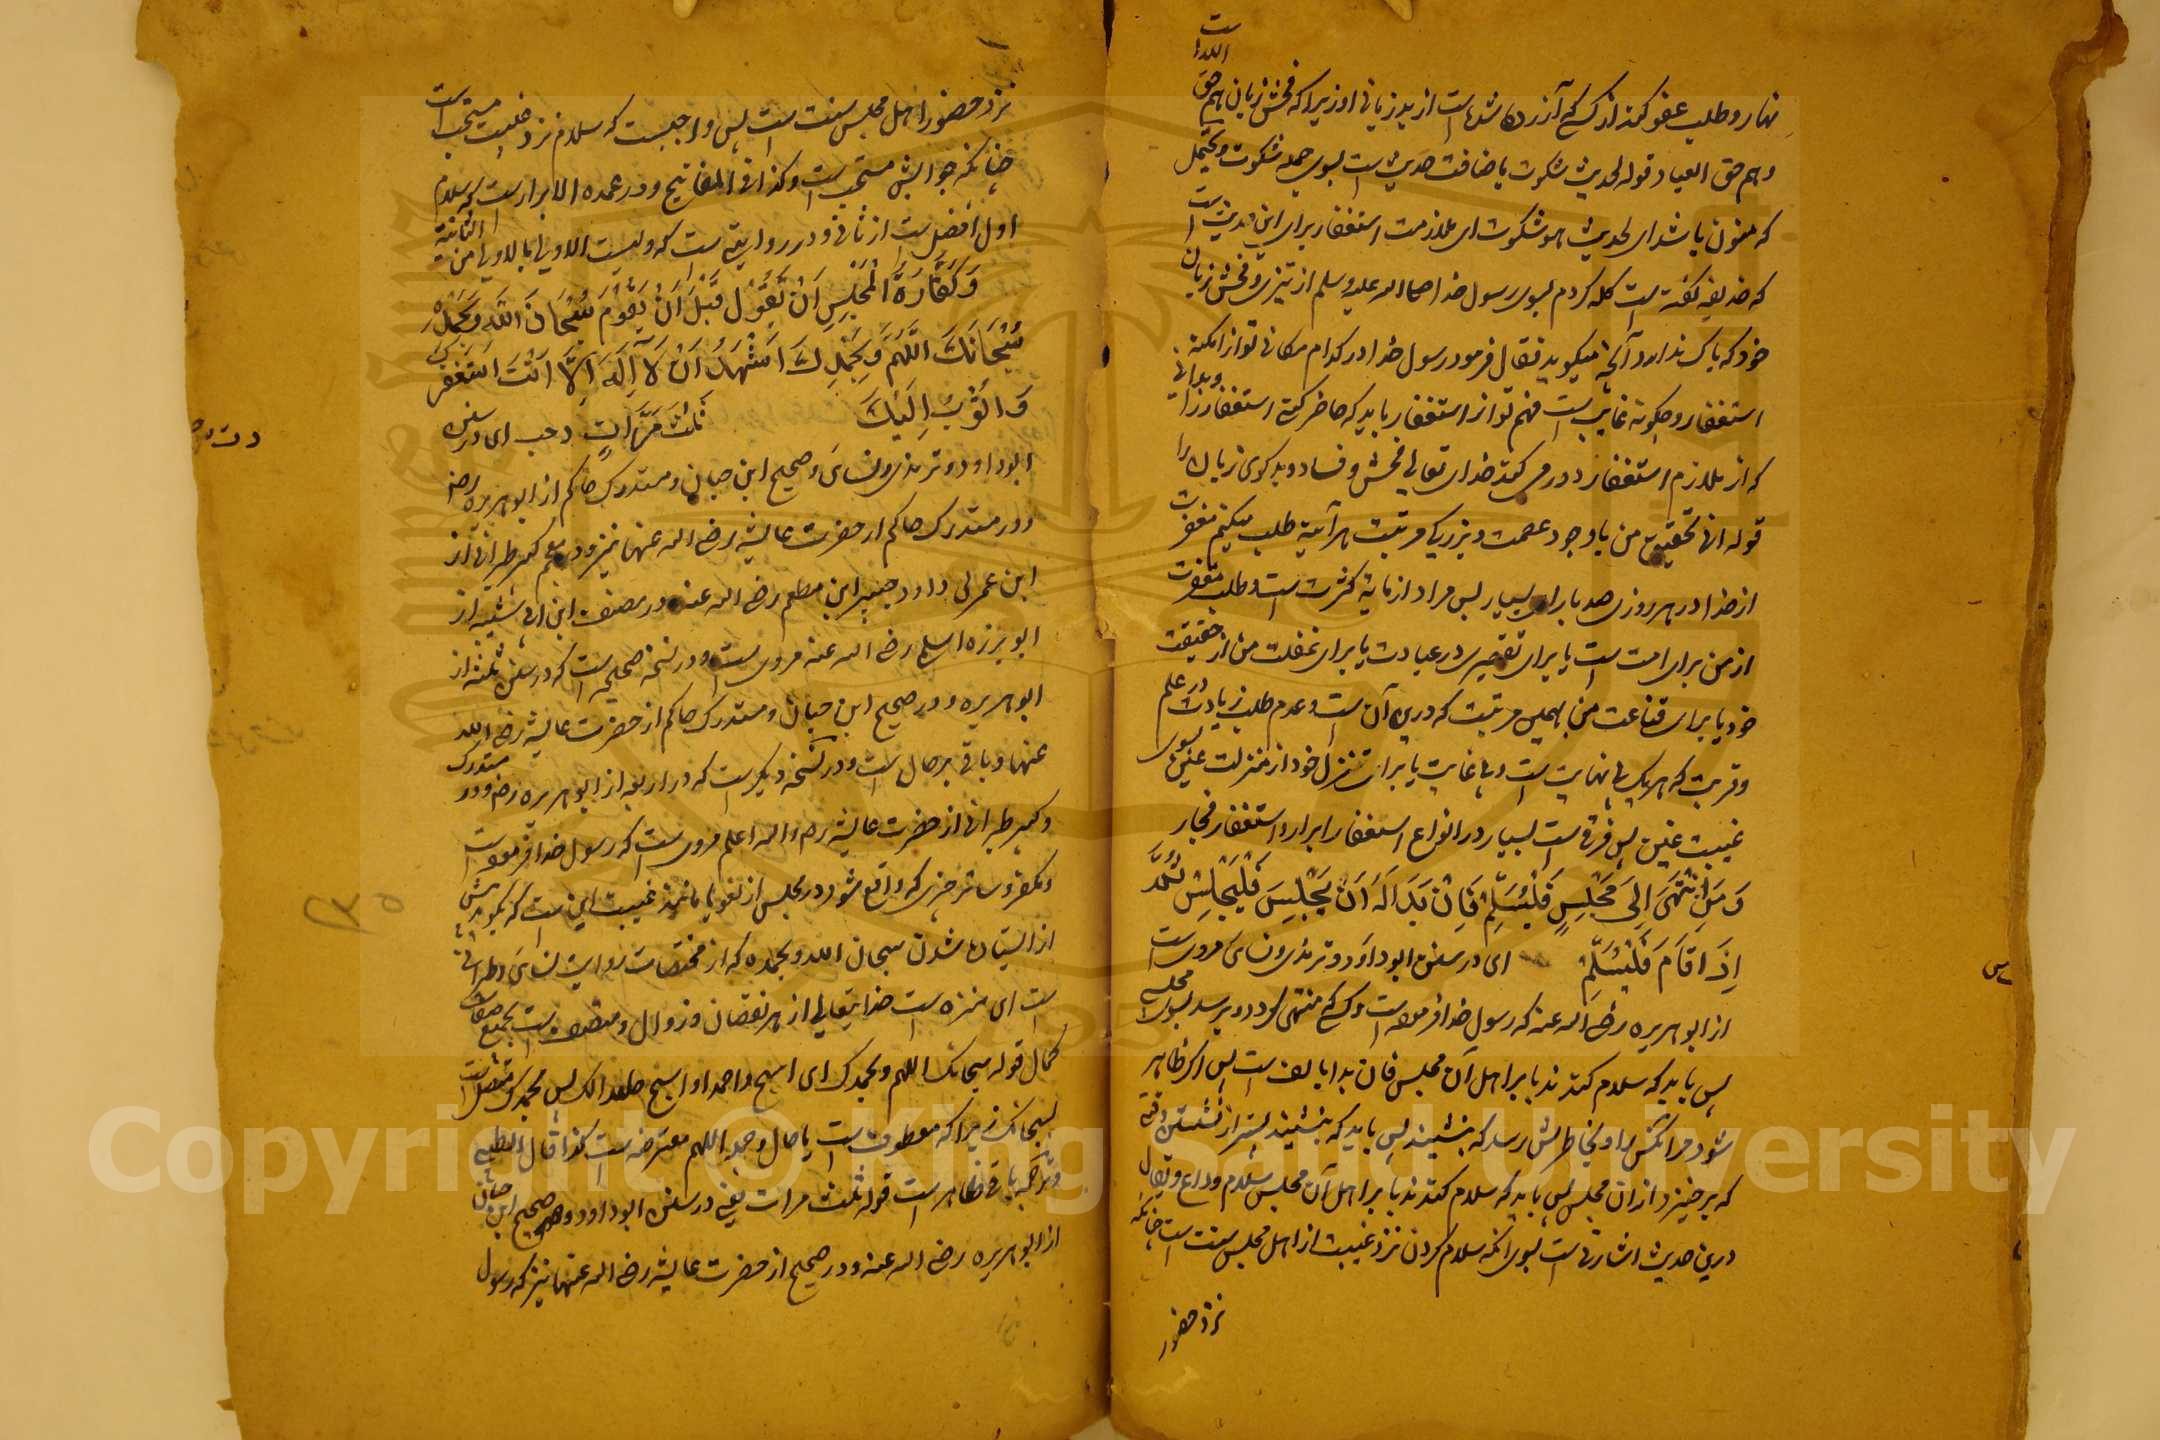 نهار و طلب عفو کند از کسی که آزرده شده است از بد زبانی او زیرا که فحش زبان هم حق الله است
و هم حق العباد قوله لحدیث شکوت باضافت حدیث است بسوی جمله شکوت و محتمل
که منون باشد ای لحدیث هو شکوت ای ملازمت استغفار برای این حدیث است
که حذیفه گفته است گله کردم بسوی رسول خدا صلی الله علیه وسلم از تیزی و فحش زبان
خود که باک ندارد آنچه میگوید فقال فرمود رسول خدا در کدام مکانی تو از امکنه
استغفار و چگونه غایب است فهم تو از استغفار باید که حاضر کنی استغفار را و بدانی
که از ملازم استغفار دور می کند خدای تعالی فحش و فساد و بد گوی زبان را
قوله انی تحقیق من با وجود عصمت و بزرگی مرتبت هر آئینه طلب میکنم مغفرت
از خدا در هر روزی صد بار ای بسیار پس مراد از مایة کثرت است و طلب مغفرت
از من برای امت است یا برای تقصیری در عبادت یا برای غفلت من از حقیقت
خود یا برای قناعت من بهمین مرتبت که درین آن است و عدم طلب زیادت در علم
و قربت که هر یک بی نهایت است و بی غایت یا برای تنزل خود از منزلت عین بسوی
غیبت غین پس فرق است بسیار در انواع استغفار ابرار و استغفار فجار
وَمَنِ انْتَهَى اِلَى مَجْلِسٍ فَلْيُسَلِّمْ فَاِنْ بَدَا لَهُ اَنْ يَجْلِسَ فَلْيَجْلِسْ ثُمَّ
اِذَا قَامَ فَلْيُسَلِّمْ ای در سنن ابو داود و ترمذی و نسای مروی است
از ابو هریره رضی الله عنه که رسول خدا فرموده است و کسی که منتهی گردد و برسد بسوی مجلسی
پس باید که سلام کند ندبا بر اهل آن مجلس فان بدا بالف است پس اگر ظاهر
شود مر آنکس را و بخاطرش رسد که بنشیند پس باید که بنشیند پستر از نشستن وقتی
که برخیزد از ان مجلس پس باید که سلام کند ندبا بر اهل آن مجلس سلام وداع و وصال
درین حدیث اشارتی است بسوی آنکه سلام کردن نزد غیبت از اهل مجلس سنت است چنانکه
نزد حضور
نزد حضور اهل مجلس سنت است پس واجبست که سلام نزد غیبت مستحب است
چنانکه جوابش مستحب است و کذا فی المفاتیح و در عمده الابرار است که سلام
اول افضل است از ثانی و در روایتی است که و لیست الاولی بالاولی من الثانیة
وَكَفَّارَةُ الْمَجْلِسِ اَنْ يَقُوْلَ قَبْلَ اَنْ يَقُوْمَ سُبْحَانَ اللهِ وَبِحَمْدِهِ
سُبْحَانَكَ اللّهُمَّ وَبِحَمْدِكَ اَشْهَدُ اَنْ لَا اِلهَ اِلَّا اَنْتَ اَسْتَغْفِرُكَ
وَاَتُوْبُ اِلَيْكَ ثَلثَ مَرَّاتٍ د حب ای در سنن
ابو داود و ترمذی و نسای و صحیح ابن حبان و مستدرک حاکم از ابو هریره رضی
و در مستدرک حاکم از حضرت عایشه رضی الله عنها نیز و در معجم کبیر طبرانی از
ابن عمر و جبیر ابن مطعم رضی الله عنه و در مصنف ابن ابی شیبه از
ابو برزه اسلمی رضی الله عنه مروی است و در نسخه صحیحه است که در سنن ثلثه از
ابو هریره و در صحیح ابن حبان و مستدرک حاکم از حضرت عایشه رضی الله
عنها و باقی بر حال است و در نسخه دیگر است که در اربعه از ابو هریره رضه و در مستدرک
و کبیر طبرانی از حضرت عایشه رض والله اعلم مروی است که رسول خدا فرموده است
و مکفر و ساتر چیزی که واقع شود در مجلس از لغو یا مانند غیبت این است که بگوید پیش
از ایستاده شدن سبحان الله و بحمده که از مختصات روایت نسای و طبرانی
است ای منزه است خدایتعالی از هر نقصان و زوال و متصف است بجمیع صفات
کمال قوله سبحانک اللهم و بحمدک ای اسبح و احمد او اسبح حامدا لک پس بحمدک متصل است
بسبحانک زیرا که معطوف است یا حال و جمله اللهم معترضه است کذا قال الطیبی
و ترجمه باقی ظاهر است قوله ثلث مرات یعنی در سنن ابو داود و صحیح ابن حبان
از ابو هریره رضی الله عنه و در صحیح از حضرت عایشه رضی الله عنها نیز که رسول
Copyright © King Saud University